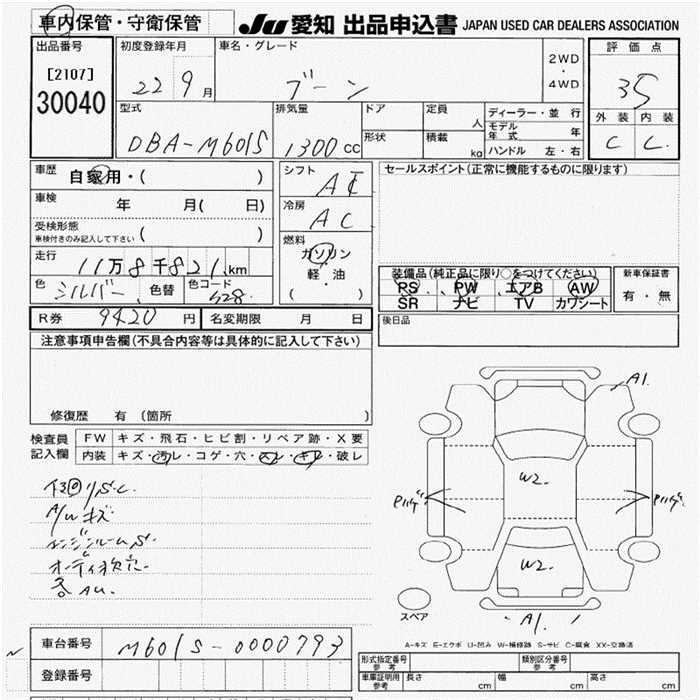 車内保管・守衛保管 JU 愛知 出品申込書 JAPAN USED CAR DEALERS ASSOCIATION
出品番号 初度登録年月 車名・グレード 2WD ・ 4WD 評価点
[2107] 22 9月 ブーン 35
30040 型式 排気量 ドア 定員 人 ディーラー・並行 外装 内装
DBA-M601S 1300 CC 形状 積載 kg モデル年式 年 C C
ハンドル 左・右
車歴 自家用・( ) シフト AT セールスポイント(正常に機能するものに限ります)
車検 年 月( 日) 冷房 AC
受検形態 車検付きのみ記入して下さい ( )
走行 11万8千821km 燃料 ガソリン 軽・油 ( )
装備品(純正品に限り○をつけてください) 新車保証書
PS、PW、エアB AW 有・無
色 シルバー 色替 色コード S28 SR ナビ TV カワシート
R券 9420円 名変期限 月 日 後日品
注意事項申告欄(不具合内容等は具体的に記入して下さい)
修復歴 有 (箇所 )
検査員記入欄 FW キズ・飛石・ヒビ割・リペア跡・X要
内装 キズ・汚レ・コゲ・穴・スレ・キレ・破レ
A1.
W2.
W2.
A1.
A/Wキズ
エンジンルームS.
オーディオ欠品
各AU.
スペア
A-キズ E-エクボ U-凹み W-補修跡 S-サビ C-腐食 XX-交換済
車台番号 M601S-0000793
登録番号
形式指定番号 参考 類別区分番号 参考
車庫証明用 参考 長さ cm 幅 cm 高さ cm